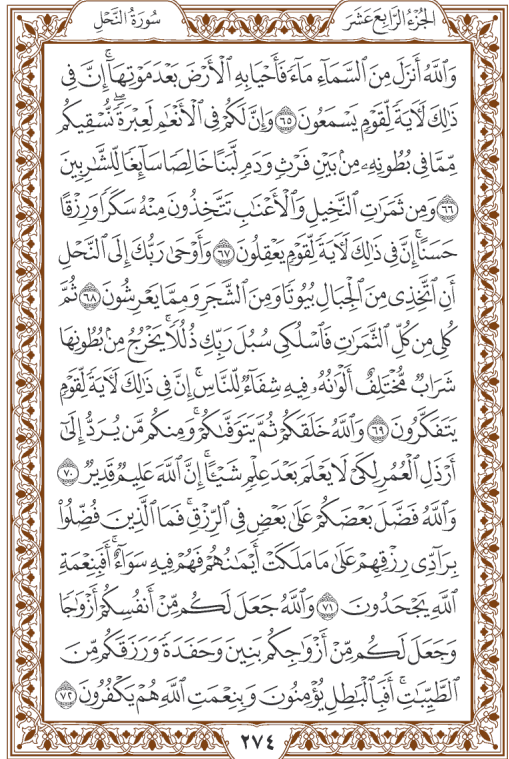 الجُزْءُ الرَّابِعَ عَشَرَ
سُورَةُ النَّحْلِ
وَٱللَّهُ أَنزَلَ مِنَ ٱلسَّمَآءِ مَآءً فَأَحْيَا بِهِ ٱلْأَرْضَ بَعْدَ مَوْتِهَآۚ إِنَّ فِى
ذَٰلِكَ لَأٓيَةً لِّقَوْمٍ يَسْمَعُونَ ٦٥ وَإِنَّ لَكُمْ فِى ٱلْأَنْعَٰمِ لَعِبْرَةًۖ نُّسْقِيكُم
مِّمَّا فِى بُطُونِهِۦ مِنۢ بَيْنِ فَرْثٍ وَدَمٍ لَّبَنًا خَالِصًا سَآئِغًا لِّلشَّٰرِبِينَ
٦٦ وَمِن ثَمَرَٰتِ ٱلنَّخِيلِ وَٱلْأَعْنَٰبِ تَتَّخِذُونَ مِنْهُ سَكَرًا وَرِزْقًا
حَسَنًاۗ إِنَّ فِى ذَٰلِكَ لَأٓيَةً لِّقَوْمٍ يَعْقِلُونَ ٦٧ وَأَوْحَىٰ رَبُّكَ إِلَى ٱلنَّحْلِ
أَنِ ٱتَّخِذِى مِنَ ٱلْجِبَالِ بُيُوتًا وَمِنَ ٱلشَّجَرِ وَمِمَّا يَعْرِشُونَ ٦٨ ثُمَّ
كُلِى مِن كُلِّ ٱلثَّمَرَٰتِ فَٱسْلُكِى سُبُلَ رَبِّكِ ذُلُلًاۚ يَخْرُجُ مِنۢ بُطُونِهَا
شَرَابٌ مُّخْتَلِفٌ أَلْوَٰنُهُۥ فِيهِ شِفَآءٌ لِّلنَّاسِۚ إِنَّ فِى ذَٰلِكَ لَأٓيَةً لِّقَوْمٍ
يَتَفَكَّرُونَ ٦٩ وَٱللَّهُ خَلَقَكُمْ ثُمَّ يَتَوَفَّىٰكُمْۚ وَمِنكُم مَّن يُرَدُّ إِلَىٰٓ
أَرْذَلِ ٱلْعُمُرِ لِكَىْ لَا يَعْلَمَ بَعْدَ عِلْمٍ شَيْـًٔاۚ إِنَّ ٱللَّهَ عَلِيمٌ قَدِيرٌ ٧٠
وَٱللَّهُ فَضَّلَ بَعْضَكُمْ عَلَىٰ بَعْضٍ فِى ٱلرِّزْقِۚ فَمَا ٱلَّذِينَ فُضِّلُوا۟
بِرَآدِّى رِزْقِهِمْ عَلَىٰ مَا مَلَكَتْ أَيْمَٰنُهُمْ فَهُمْ فِيهِ سَوَآءٌۚ أَفَبِنِعْمَةِ
ٱللَّهِ يَجْحَدُونَ ٧١ وَٱللَّهُ جَعَلَ لَكُم مِّنْ أَنفُسِكُمْ أَزْوَٰجًا
وَجَعَلَ لَكُم مِّنْ أَزْوَٰجِكُم بَنِينَ وَحَفَدَةً وَرَزَقَكُم مِّنَ
ٱلطَّيِّبَٰتِۚ أَفَبِٱلْبَٰطِلِ يُؤْمِنُونَ وَبِنِعْمَتِ ٱللَّهِ هُمْ يَكْفُرُونَ ٧٢
٢٧٤